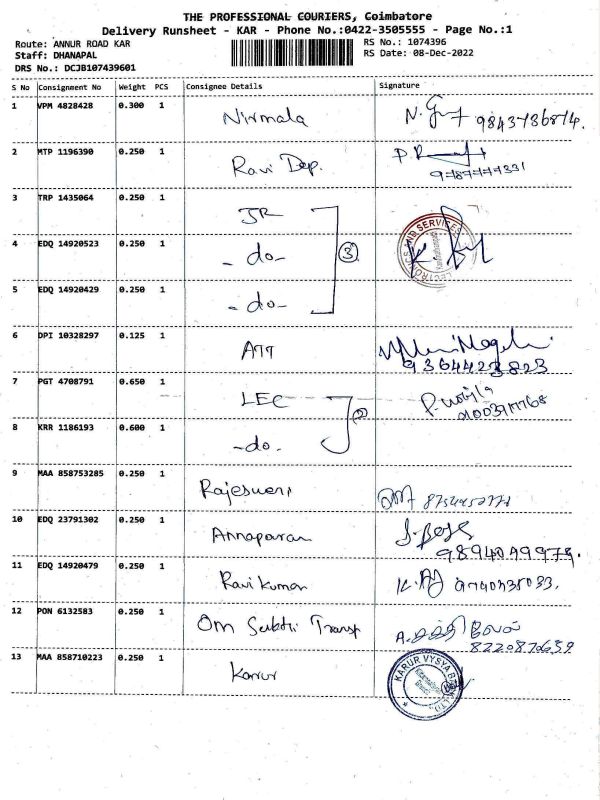 THE PROFESSIONAL COURIERS, Coimbatore
Delivery Runsheet - KAR - Phone No.:0422-3505555 - Page No.:1
Route: ANNUR ROAD KAR
Staff: DHANAPAL
DRS No.: DCJB107439601
RS No.: 1074396
RS Date: 08-Dec-2022
S No Consignment No Weight PCS Consignee Details Signature
1 VPM 4828428 0.300 1 Nirmala N.
2 MTP 1196390 0.250 1 Ravi Dep.
3 TRP 1435064 0.250 1 JR
4 EDQ 14920523 0.250 1 - do - 3
5 EDQ 14920429 0.250 1 - do -
6 DPI 10328297 0.125 1 9364423823
7 PGT 4708791 0.650 1 LEC
8 KRR 1186193 0.600 1 - do - 2
9 MAA 858753285 0.250 1 Rajesweri
10 EDQ 23791302 0.250 1 Annapuran
11 EDQ 14920479 0.250 1 Ravi Kumar
12 PON 6132583 0.250 1 Om Sakthi Transp
13 MAA 858710223 0.250 1 Karur KARUR VYSYA BANK LTD.